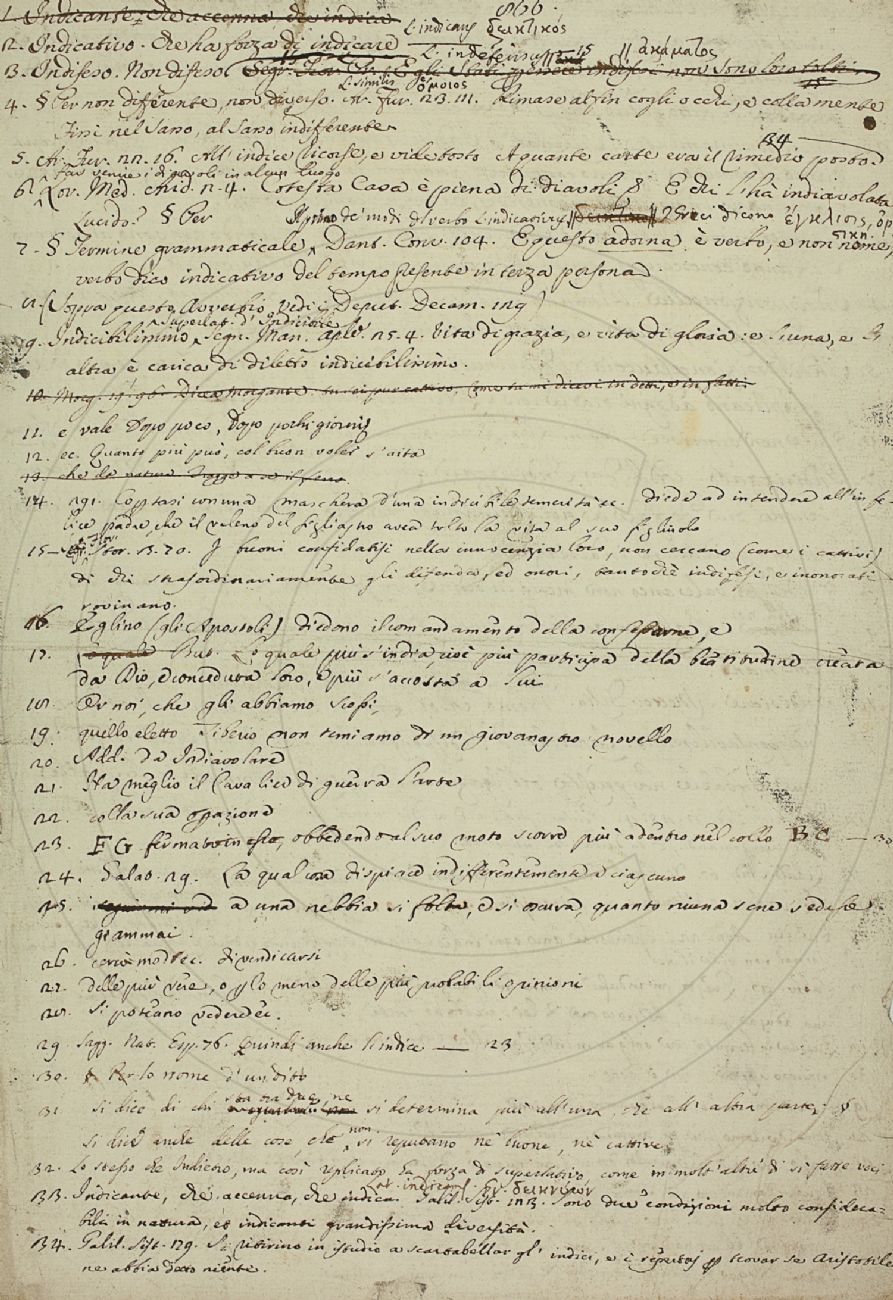 866.
1. Indicante, Che accenna, che indica
L. indicans δεικτικός
2. Indicativo. Che ha forza di indicare
L. indefensus 15 // ἀκάματος
3. Indifeso. Non difeso.
L. similis ὅμοιος
4. § Per non differente, non diverso. Ar. Fur. 23. 111. Rimase alfin cogli occhi, e colla mente
Fissi nel sasso, al sasso indifferente
34
5. Ar. Fur. 22. 16. All' indice ricorse, e vide tosto A quante carte era il rimedio posto.
Far venire i diavoli in alcun luogo
6. Lov. Med. Arid. 2. 4. Cotesta Casa è piena di diavoli § E chi l'hà indiavolata
Lucido? § Per Il primo de' modi del verbo L. indicativus // I Greci dicono ἔγκλισις ὁριστική.
7. § Termine grammaticale, Dant. Conv. 104. E questo adorna è verbo, e non nome,
verbo dico indicativo del tempo presente in terza persona.
8. (Sopra questo Avverbio Vedi i Deput. Decam. 129)
superlat. d' Indicibile
9. Indicibilissimo Segn. Man. Apr. 25. 4. Vita di grazia, e vita di gloria: e l'una, e l'
altra è carica di diletto indicibilissimo.
10. Morg. 19. 96. Dicea Morgante: tu sei pur cattivo, Come tu mi dicevi in detti, e in fatti.
11. e vale Dopo poco, Dopo pochi giorni
12. ec. Quanto più può, col buon voler s'aita
13. che da natura tragge a se il ferro
14. 291. Copertasi con una maschera d'una indicibile temerità ec. diede ad intendere all' infe-
lice padre, che il veleno del figliastro avea tolto la vita al suo figliuolo
15. Stor. 13. 70. I buoni confidatisi nella innocenzia loro, non cercano (come i cattivi)
di chi straordinariamente gli difenda, ed onori, tantochè indifesi, e inonorati
rovinano.
16. Eglino (gli Apostoli) diedono il comandamento della confessione, e
17. But. E quale più s'india, cioè più participa della beatitudine creata
da Dio, e conceduta loro, e più s'accosta a lui
18. Or noi, che gli abbiamo scossi,
19. quello eletto Tiberio non temiamo di un giovanastro novello
20. Add. da Indiavolare
21. Ha meglio il Cavalier di guerra l'arte
22. colla sua orazione
23. EG fermato in esso, obbedendo al suo moto scorre più adentro nel collo BC — 30
24. Galat. 29. La qual cosa dispiace indifferentemente a ciascuno
25. a una nebbia si folta, e si oscura, quanto niuna se ne vedesse
giammai.
26. certo modo ec. di vendicarsi
27. delle più vere, o per lo meno delle più probabili opinioni
28. si poteano vedere ec.
29. Sagg. Nat. Esp. 76. Quindi anche l'indice — 23
30. § Per lo nome d'un dito
31. Si dice di chi sta tra due, ne si determina più all' una, che all' altra parte; §
si dice anche delle cose, che non si reputano nè buone, nè cattive
32. Lo stesso che Indicoro, ma così replicato ha forza di superlativo, come in molt' altri di si fatte voci
Lat. indicans Gr. δεικνύων
33. Indicante, che accenna, che indica. Galil. Sist. 113. Sono due condizioni molto considera-
bili in natura, et indicanti grandissima diversità.
34. Galil. Sist. 179. Si ritirino in istudio a scartabellar gl' indici, e i repertorj per trovar se Aristotile
ne abbia detto niente.